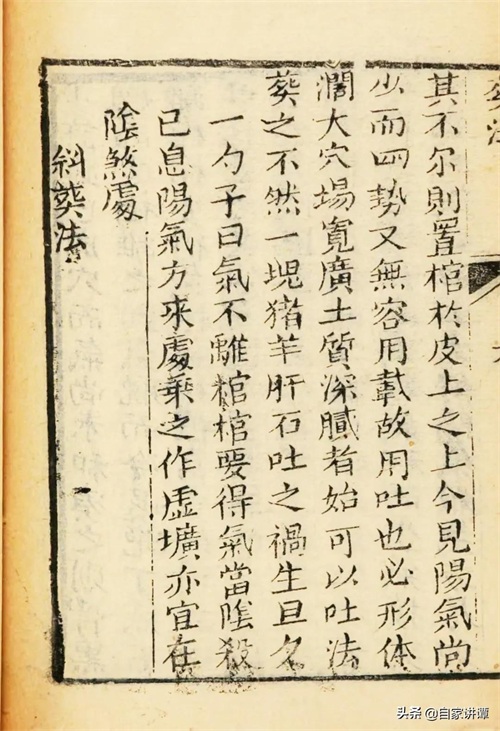 其不尔則置棺扵皮上之上今見陽氣尚
少而四勢又無容用載故用吐也必形体
濶大穴場寬廣土質深膩者始可以吐法
葬之不然一塊猪羊肝石吐之禍生旦夕
一勺子曰氣不離棺棺要得氣當陰殺
已息陽氣方來處乘之作虛壙亦宜在
陰煞處
斜葬法
头条 @自家讲谭